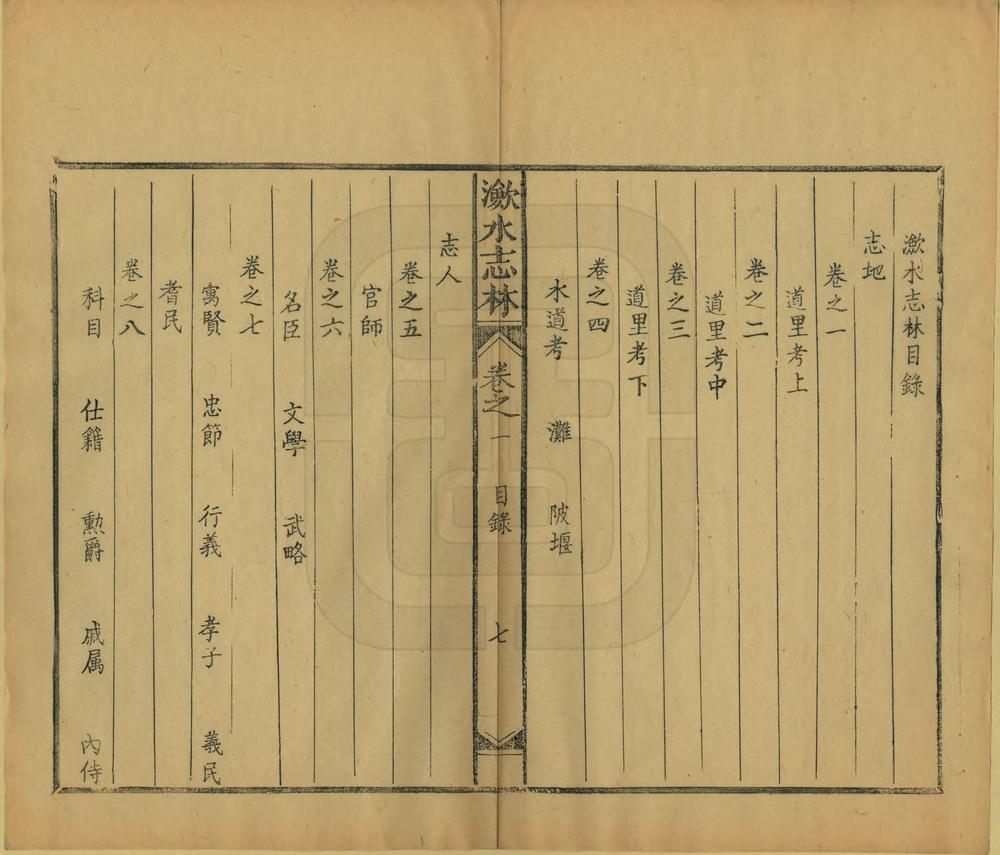 潄水志林目錄
志地
卷之一
道里考上
卷之二
道里考中
卷之三
道里考下
卷之四
水道考 灘 陂堰
潄水志林 卷之一 目錄 七
志人
卷之五
官師
卷之六
名臣 文學 武略
卷之七
寓賢 忠節 行義 孝子 義民
耆民
卷之八
科目 仕籍 勲爵 戚属 內侍